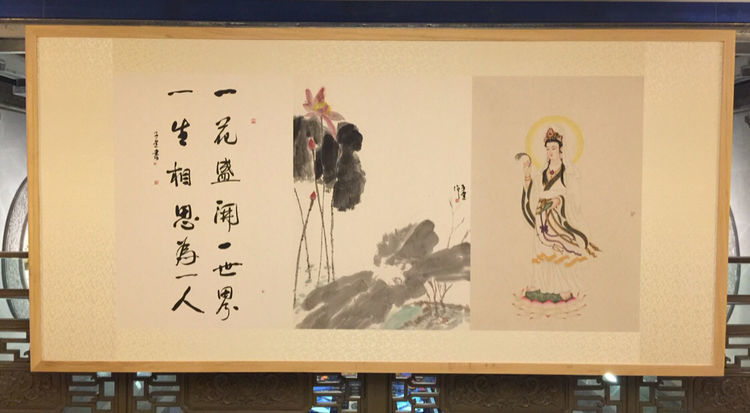 一花盛開一世界
一生相思為一人